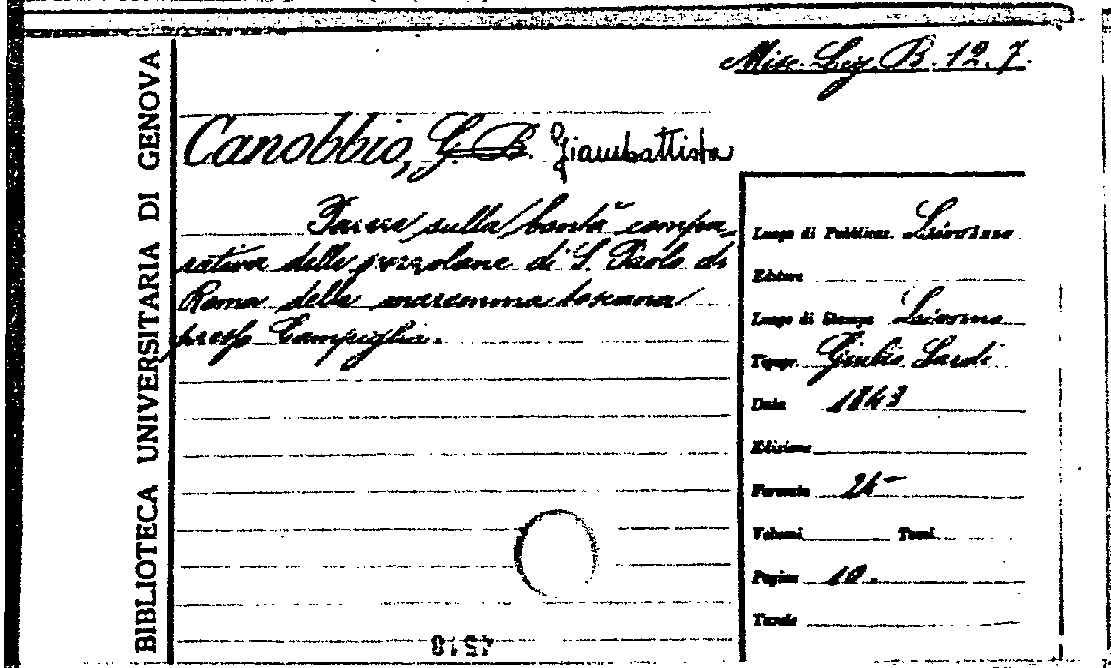 Misc. Lig. B. 12. 7.
Canobbio, G. B. Giambattista
Parere sulla bontà compa-
rativa delle pozzolane di S. Paolo di
Roma della maremma toscana
presso Campiglia.
BIBLIOTECA UNIVERSITARIA DI GENOVA
Luogo di Pubblicaz. Livorno
Editore
Luogo di Stampa Livorno
Tipogr. Giulio Sardi
Data 1843
Edizione
Formato
Volumi Tomi
Pagine 10.
Tavole